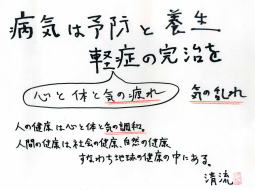 病気は予防と養生
軽症の完治を
心と体と気の疲れ 気の乱れ
人の健康は心と体と気の調和。
人間の健康は、社会の健康、自然の健康、
すなわち地球の健康の中にある。
清流